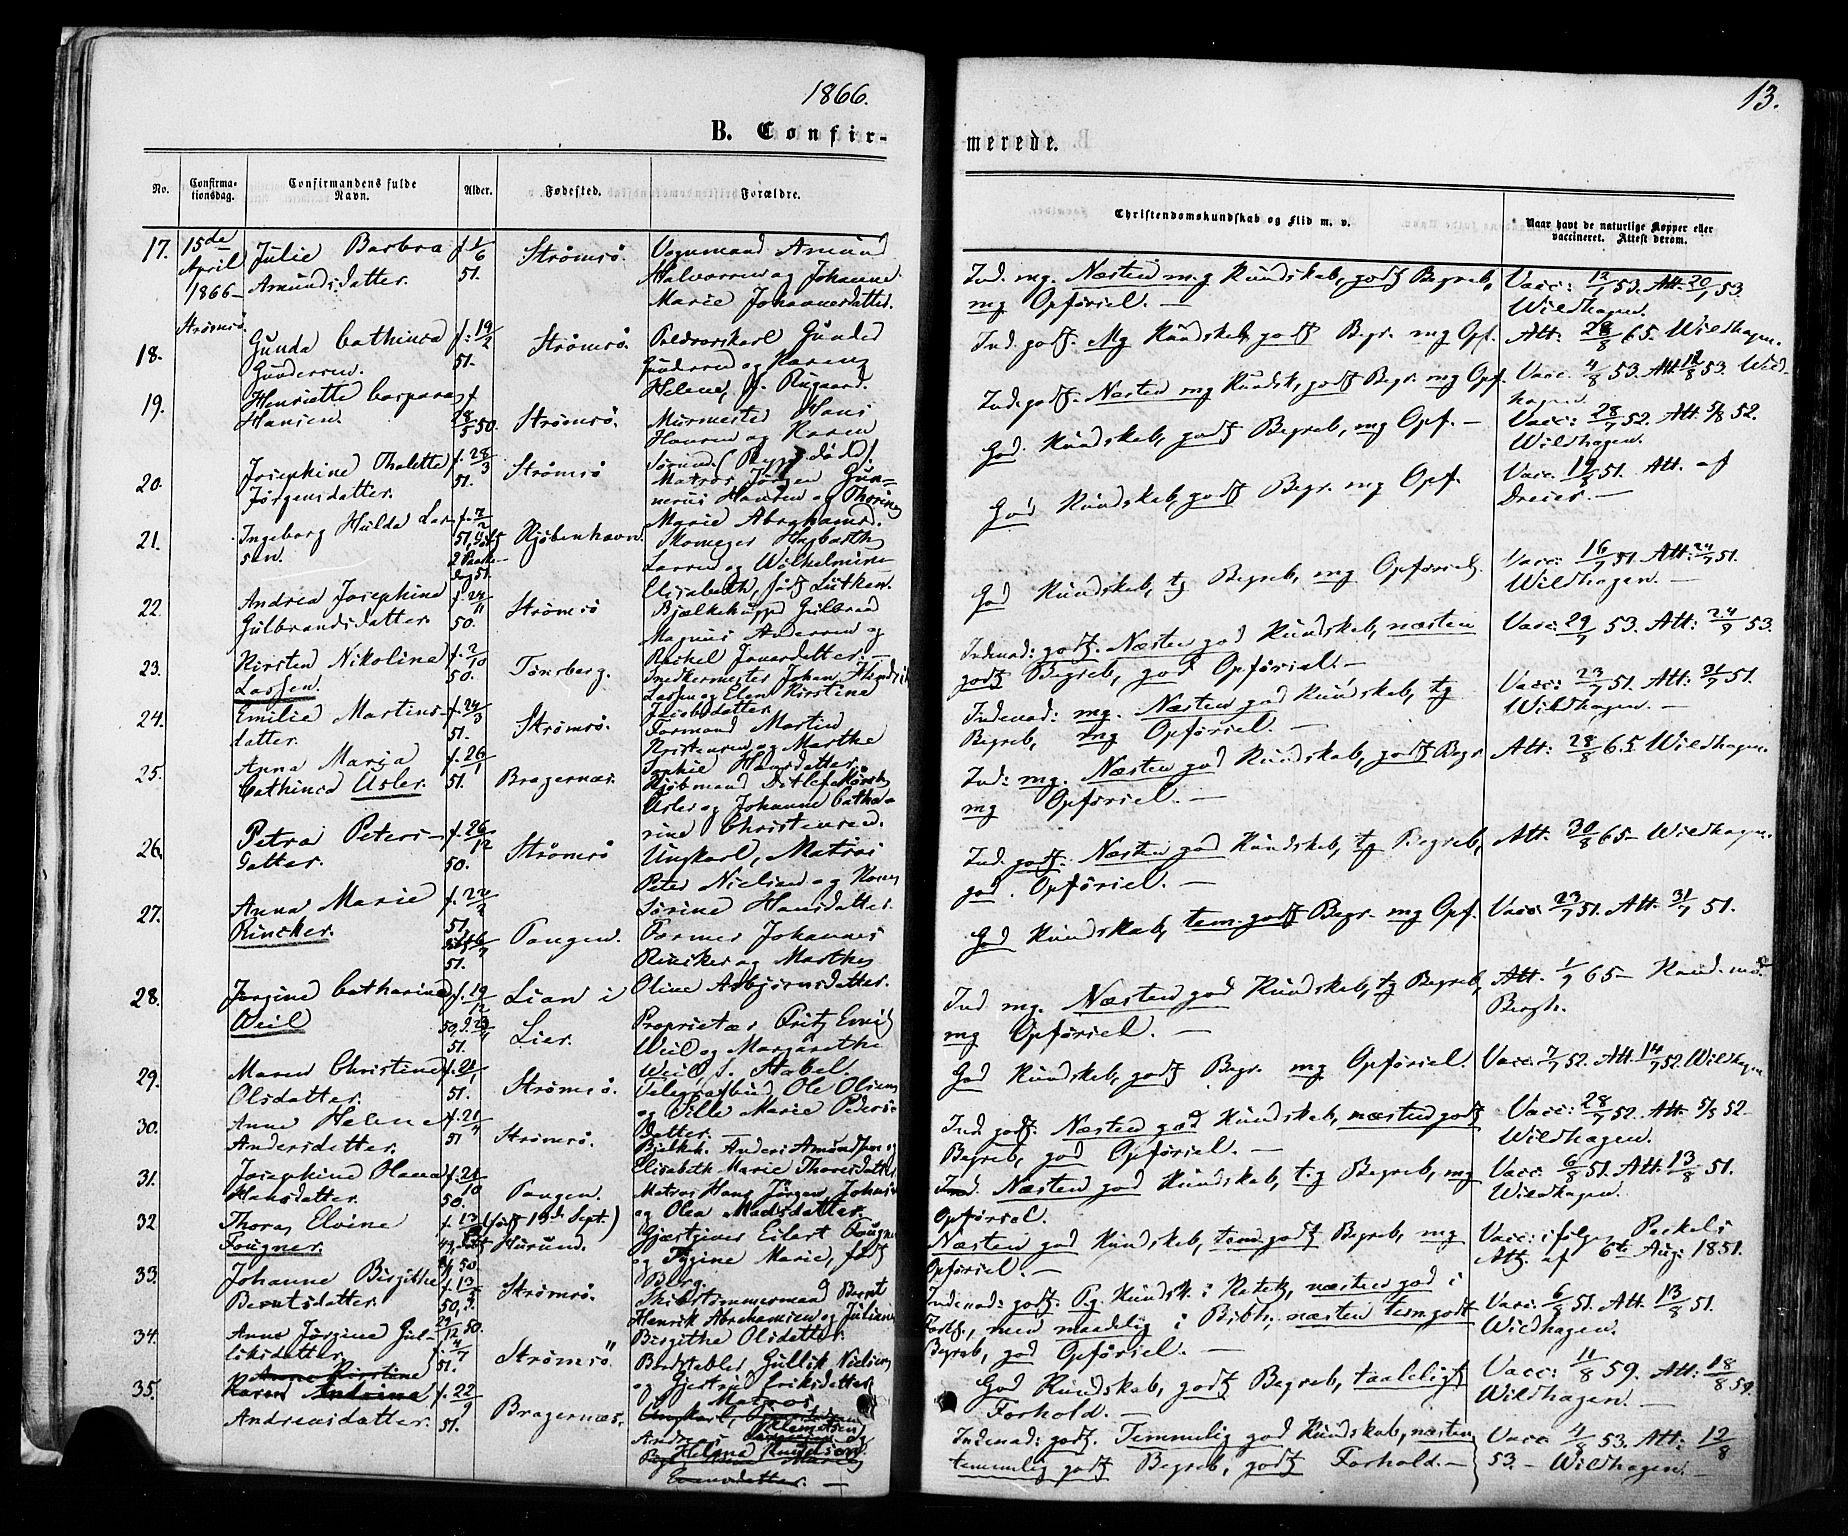 1866.
13.
B. Confir-
merede.
No.
Confirma-
tionsdag.
Confirmandens fulde
Navn.
Alder.
Fødested.
Forældre.
Christendomskundskab og Flid m. v.
Naar havt de naturlige Kopper eller
vaccineret. Attest derom.
17.
15de
April
1866–
Strømsö.
Julie Barbra
Amundsdatter.
f. 1/6
51.
Strømsö.
Vognmand Amund
Halvorsen og Johanne
Marie Johannesdatter.
Ind. mg. Næsten mg Kundskab, godt Begreb,
mg Opförsel. —
Vacc: 12/7 53. Att: 20/7 53.
Wildhagen.
18.
Gunda Cathinca
Gundersen.
f. 19/2
51.
Strømsö.
Gunder
Gundersen og Karen
Helene, f. Rygaard.
Ind. godt. Mg Kundskab, godt Begr. mg Opf.
Att: 28/8 65. Wildhagen.
19.
Henriette Caspara
Hansen.
f.
28/5 50.
Strømsö.
Murmester Hans
Hansen og Karen
Ind. godt. Næsten mg Kundsk, godt Begr. mg Opf.
Vacc. 4/8 53. Att 12/8 53. Wild-
hagen.
20.
Josephine Thalette
Jörgensdatter.
f. 28/3
51.
Strømsö
Matros Jörgen Gun-
nerius Hansen og Thorine
Marie Abrahams.
God Kundskab, godt Begreb, mg Opf. —
Vacc: 28/7 52. Att. 5/8 52.
Wildhagen.
21.
Ingeborg Hulda Lar-
sen.
f. 7/2
51, döbt
2 Paaske-
dag 51.
Kjöbenhavn.
Skomager Hagbarth
Larsen og Wilhelmine
Elisabeth, födt Lütken.
God Kundskab, godt Begr. mg Opf.
Vacc. 19/8 51. Att. af
Dreier. —
22.
Andrea Josephine
Gulbrandsdatter.
f. 24/11
50.
Strømsö
Bjælkehugger Gulbrand
Magnus Andersen og
Rachel Jonasdatter. —
God Kundskab, tg Begreb, mg Opförsel.
Vacc: 16/7 51. Att: 24/7 51.
Wildhagen.
23.
Kirsten Nikoline
Lassen.
f. 2/10
50.
Tönsberg.
Snedkermester Johan Hendrik
Lassen og Elen Kirstine
Jacobsdatter.
Indenad: godt. Næsten god Kundskab, næsten
godt Begreb, god Opförsel. —
Vacc: 29/7 53. Att: 24/9 53.
24.
Emilie Martins-
datter.
f. 24/3
51.
Strømsö.
Formand Martin
Kristensen og Marthe
Sophie Hansdatter.
Indenad: mg. Næsten god Kundskab, tg
Begreb, mg Opförsel. —
Vacc: 23/7 51. Att: 31/7 51.
Wildhagen. —
25.
Anna Maria
Cathinca Usler.
f. 26/1
51.
Bragernæs.
Kjöbmand Ditlef
Usler og Johanne Catha-
rine Christensen.
Ind: mg. Næsten god Kundskab, godt Begr
mg Opförsel. —
Att: 28/8 65. Wildhagen.
26.
Petra Peters-
datter.
f. 26/12
50.
Strømsö
Ungkarl, Matros
Peter Nielsen og Karen
Sörine Hansdatter.
Ind. godt. Næsten god Kundskab, tg Begreb,
god Opförsel. —
Att: 30/8 65– Wildhagen.
27.
Anna Marie
Rincker.
f. 22/2
51,
51.
Tangen.
Farmer Johannes
Rincker og Marthe
Oline Asbjörnsdatter.
God Kundskab, tem. godt Begr. mg Opf.
Vacc. 23/7 51. Att. 31/7 51.
28.
Jörgine Catharina
Weil
f. 19/12
50,
51.
Lian i
Lier.
Proprietær Fritz Emil
Weil og Margarethe
Weil, f. Stabel.
Ind mg. Næsten god Kundskab, tg Begreb,
mg Opförsel. —
Att. 1/9 65– Kand. med
Bergh.
29.
Maren Christine
Olsdatter.
f. 21/1
51.
Strømsö.
Telegrafbud Ole Olsen
og Sille Marie Peders-
datter. —
God Kundskab, godt Begr. mg Opförsel.
Vacc. 7/7 52. Att. 14/7 52. Wildhagen
30.
Anne Helene
Andersdatter.
f. 21/4
51
Strømsö.
Bjelkh. Anders Amundsen og
Elisabeth Marie Thoresdatter
Ind godt. Næsten god Kundskab, næsten godt
Begreb, god Opförsel. —
Vacc: 28/7 52. Att. 5/8 52–
Wildhagen.
31.
Josephine Olava
Hansdatter.
f. 21/10
50.
Tangen.
Matros Hans Jörgen Johnsen
og Olea Madsdatter.
Ind. Næsten god Kundskab, t.g Begreb, mg
Opförsel.
Vacc: 6/8 51. Att. 13/8 51.
Wildhagen.
32
Thora Elvine
Fougner.
f. 13
50
(födt 13de Sept.)
Hurund.
Gjæstgiver Eilert Fougner
og Jörgine Marie, födt
Berg.
Næsten god Kundskab, tem. godt Begreb, mg
Opförsel. —
Vacc: ifölge Pockels
Att. af 6te Aug: 1851.
33.
Johanne Birgithe
Berntsdatter.
f. 13/5
50,
Strømsö.
Skibstömmermand Bernt
Henrik Abrahamsen og Juliane
Birgitha Olsdatter
Indenad: godt. Pg. Kundsk. i Katek, næsten god i
Forkl., men maadelig i Bibh., næsten tem godt
Begreb, god Opförsel. —
Vacc: 6/8 51. Att: 13/8 51.
Wildhagen.
34.
Anne Jörgine Gul-
liksdatter
29/12 50.
4/7
51.
Strømsö.
Bordstabler Gullik Nielsen
og Gjertrud Eriksdatter
God Kundskab, godt Begreb, taaleligt
Forhold. —
Vacc: 11/8 59. Att: 18/8 59.
Wildhagen. —
35.
Anne Kirstine
Karen Andrine
Andreasdatter.
f. 22/9
51.
Bragernæs.
Matros
Ungkarl,
Andreas
Helene Knudsen
Marie
Evensdatter. —
Indenad: godt. Temmelig god Kundskab, næsten
temmelig godt Begreb, godt Forhold. —
Vacc 4/8 53. Att: 12/8
53. – Wildhagen. —